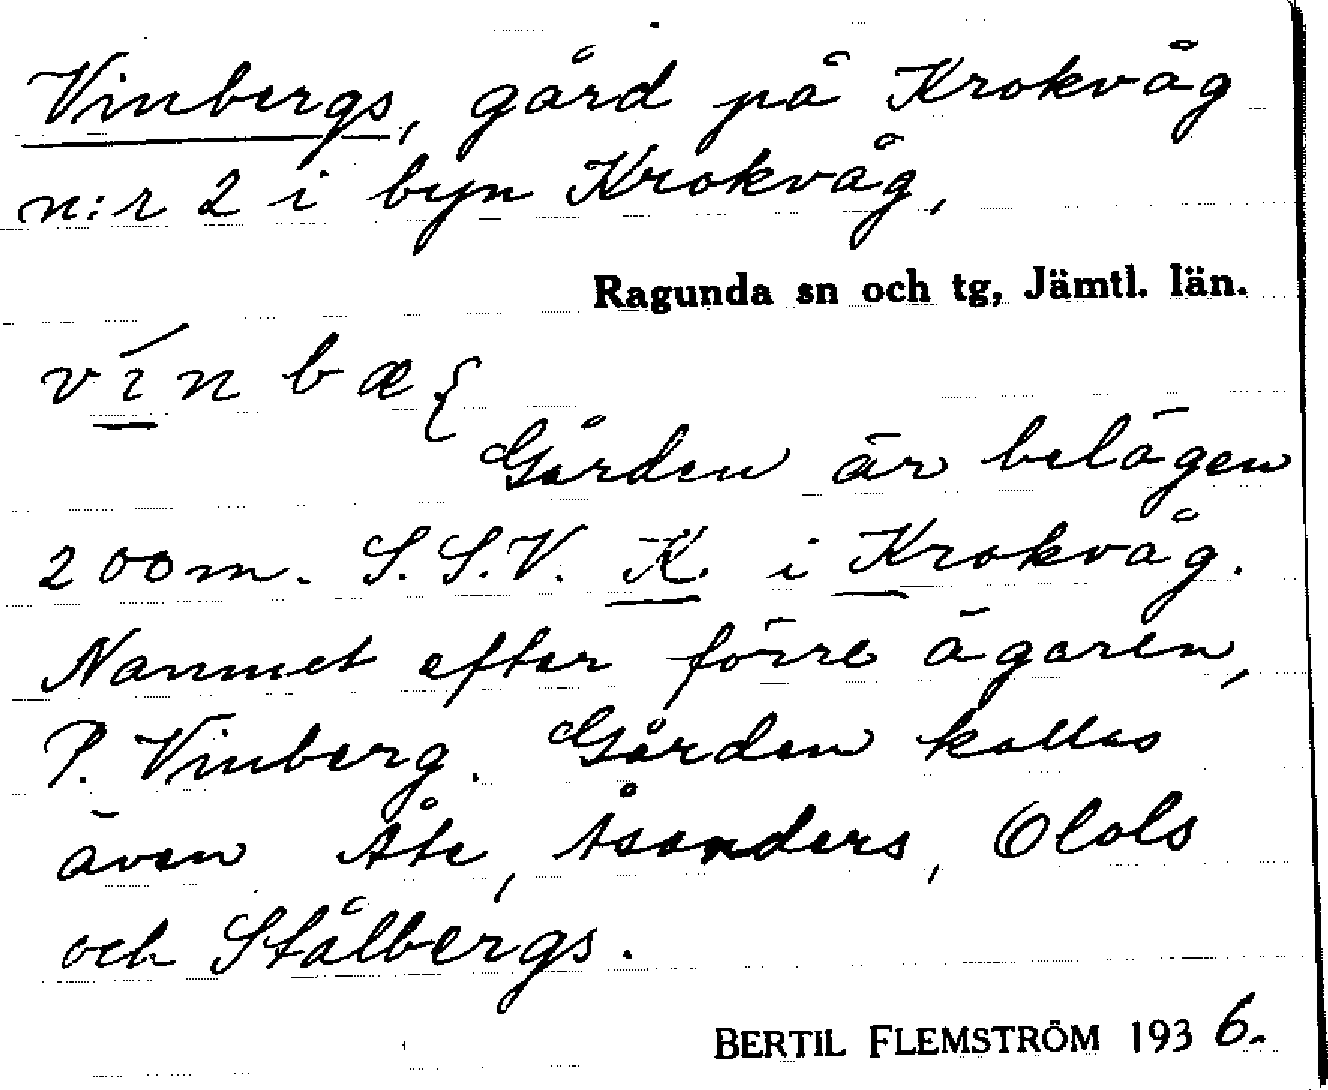 Vinbergs, gård på Krokvåg
n:r 2 i byn Krokvåg,
Ragunda sn och tg, Jämtl. län.
v í n b æ {
Gården är belägen
200 m. S.S.V. K i Krokvåg.
Namnet efter förre ägaren,
P. Vinberg. Gården kallas
även Åte, Åsanders, Olols
och Stålbergs.
BERTIL FLEMSTRÖM 1936.